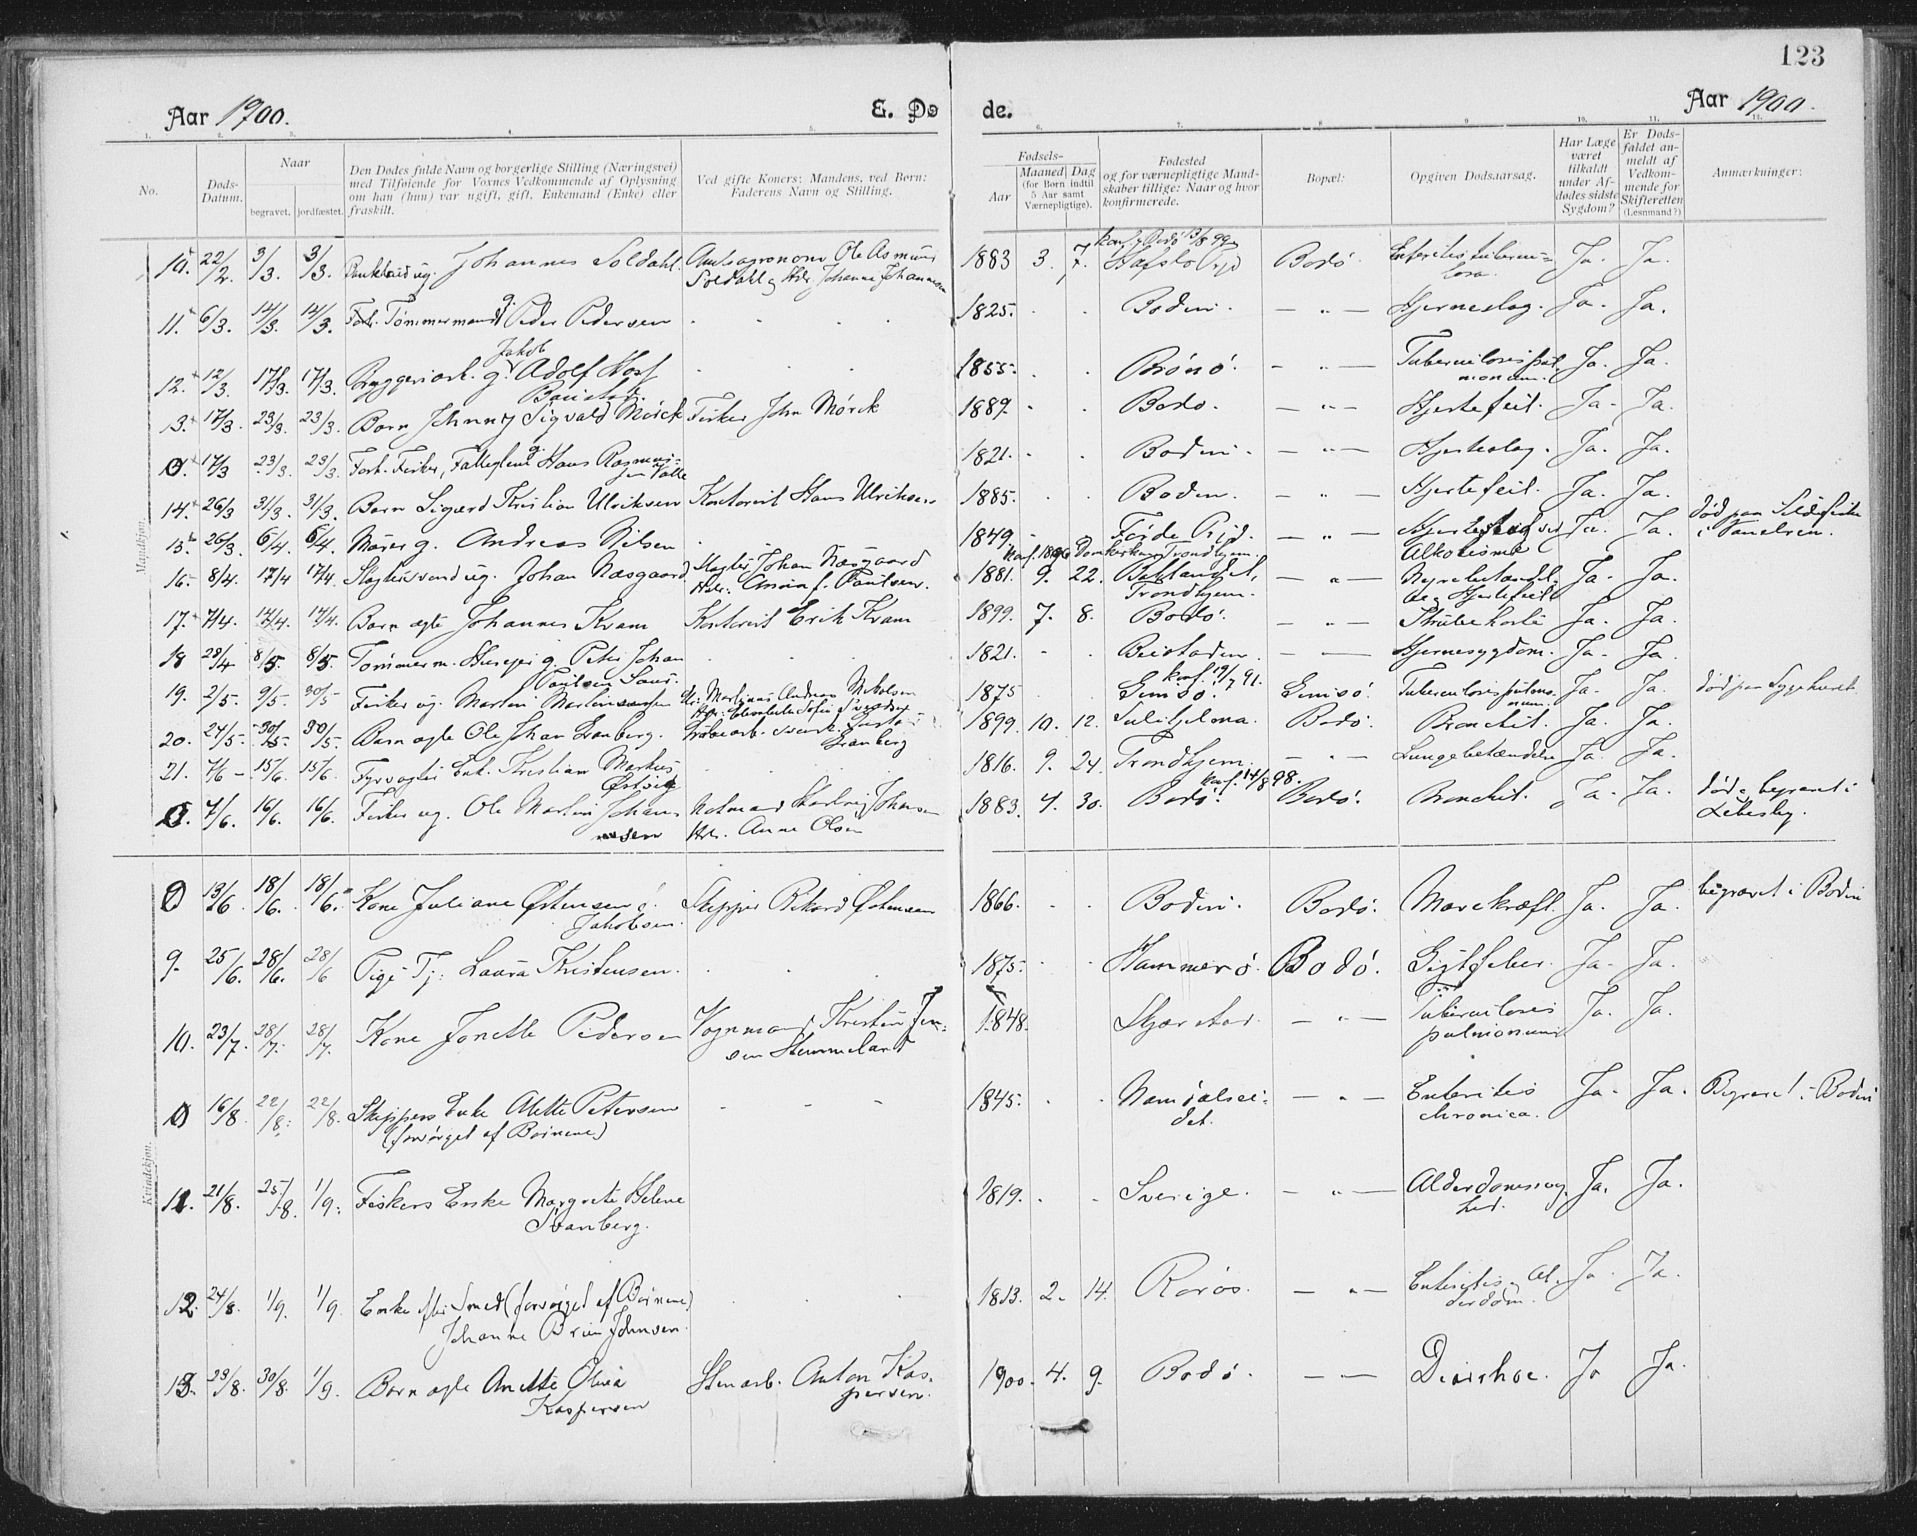 123
Aar 1900. E. Dø de. Aar 1900.
1. 2. 3. 4. 5. 6. 7. 8. 9. 10. 11. 12.
No.
Døds-Datum.
Naar
begravet. jordfæstet.
Den Dødes fulde Navn og borgerlige Stilling (Næringsvei)
med Tilføiende for Voxnes Vedkommende af Oplysning
om han (hun) var ugift, gift, Enkemand (Enke) eller
fraskilt.
Ved gifte Koners: Mandens, ved Børn:
Faderens Navn og Stilling.
Fødsels-
Aar Maaned Dag
(for Børn indtil
5 Aar samt
Værnepligtige).
Fødested
og for værnepligtige Mand-
skaber tillige: Naar og hvor
konfirmerede.
Bopæl:
Opgiven Dødsaarsag.
Har Læge
været
tilkaldt
under Af-
dødes sidste
Sygdom?
Er Døds-
faldet an-
meldt af
Vedkom-
mende for
Skifteretten
(Lensmand?)
Anmærkninger:
Mandkjøn.
10. 22/2. 3/3. 3/3. ug. Johannes Soldahl. Amtsagronom Ole Asmund 1883 3. 7. Hafslo Bodø. Enteritis tubercu- Ja. Ja.
Soldahl og Hstr. Johanne Johannesen losa.
11. 6/3. 12/3. 12/3. Tømmermand g. Peder Pedersen 1825. Bodin. — " — Hjerneslag. Ja. Ja.
Jakob
12. 12/3. 17/3. 17/3. Bryggeriarb. g. Adolf Hof 1855. Brønø. — " — Tuberculosis pul- Ja. Ja.
monum.
13. 17/3. 23/3. 23/3. Barn Johnny Sigvald Mørck Fisker John Mørck 1889. Bodø. — " — Hjertefeil. Ja. Ja.
0. 17/3 23/3. 23/3. Forh. Fisker, Fattiglem g. Hans Rasmus- 1821. Bodin. — " — Hjerteslag. Ja. Ja.
sen Valle
14. 26/3 31/3. 31/3. Barn Sigurd Kristian Ulriksen Kontorist Hans Ulriksen 1885. Bodin. — " — Hjertefeil. Ja. Ja.
15. 26/3. 6/4. 6/4. Murer g. Andreas Nilsen 1849. — " — Alkoholisme Ja. Ja. død paa Sildefiske
16. 8/4. 17/4 17/4. Slagtersvend ug. Johan Næsgaard Slagter Johan Næsgaard 1881. 9. 22. Baklandet, — " — Nyrebetændel- Ja. Ja.
Hstr. Anna f. Paulsen. Trondhjem. se og Hjertefeil
17. 7/4. 12/4. 12/4. Barn ægte Johannes Kvam Kontorist Erik Kvam 1899. 7. 8. Bodø. — " — Strubehoste Ja. Ja.
18 28/4 8/5. 8/5. Tømmerm. Huseier g. Peter Johan 1821. Beistaden. — — Hjernesygdom. Ja. Ja.
konf. 19/7 91.
19. 2/5. 9/5. 30/5 Fisker ug. Martin Martinussen 1875 Gimsø. Gimsø. Tuberculosis pulmo- Ja. Ja. død paa Sygehuset
num.
20. 24/5. 30/5. 30/5. Barn ægte Ole Johan Granberg. Grubearb. svensk Gustav 1899. 10. 12. Sulitjelma. Bodø. Bronchit. Ja. Ja.
Granberg
21. 7/6 15/6. 15/6. Fyrvogter Enk. Kristian Markus 1816. 9. 24. Trondhjem. — " — Lungebetændelse Ja. Ja.
Østvig
konf. 14/8 98.
0. 7/6. 16/6. 16/6. Fisker ug. Ole Martin Johans Notmand Hartvig Johansen 1883. 4. 30. Bodø. Bodø. Bronchit. Ja. Ja. død & begravet i
sen Hstr. Anne Olsen Lebesby.
Kvindekjøn.
0 13/6. 18/6. 18/6. Kone Juliane Østensen Skipper Rikard Østensen 1866. Bodin. Bodø. Mavekræft. Ja. Ja. begravet i Bodin
Jakobsen.
9. 25/6. 28/6. 28/6 Pige - Tj: Laura Kristensen. 1875. Hammerø. Bodø. Gigtfeber. Ja. Ja.
10. 23/7. 28/7. 28/7. Kone Jonette Pedersen Vognmand Kristen Jen- 1848. Skjærstad. — " — Tuberculosis Ja. Ja.
sen Hemmeland pulmonum
0 16/8. 22/8. 22/8. Skippers Enke Alette Petersen 1845. Namdalsei- — " — Enteritis Ja. Ja. Begravet i Bodin
(forsørget af Børnene) det. chronica.
11. 21/8. 25/8. 1/9. Fiskers Enke Margrete Helene 1819. Sverige. — " — Alderdomssvag- Ja. Ja.
Svanberg. hed.
12. 24/8. 1/9. 1/9. Enke efter Smed (forsørget af Børnene) 1813. 2. 14. Rørøs. — " — Enteritis, Al- Ja. Ja.
Johanne Johnsen. derdom.
13. 28/8. 30/8. 1/9. Barn ægte Anette Olivia Stenarb. Anton Kas- 1900. 4. 9. Bodø. — — Diarrhoe. Ja Ja.
Kaspersen persen.